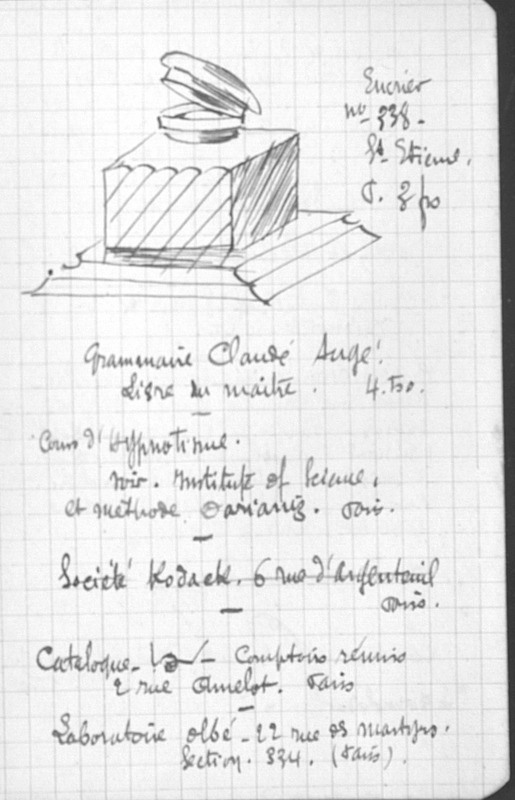 Encrier
no 338.
St. Etienne.
P. 3 frs
Grammaire Claude Augé.
Livre du maître. 4.50.
Cours d'Hypnotisme.
voir. Institute of Science,
et méthode Paris.
Société Kodack. 6 rue d'Argenteuil
Paris.
Catalogue - Comptoirs réunis
2 rue Amelot. Paris
Laboratoire olbé - 22 rue des Martyrs.
Section. 334. (Paris).